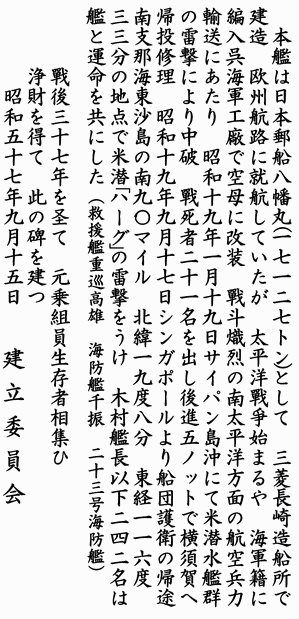 本艦は日本郵船八幡丸(一七一二七トン)として 三菱長崎造船所で
建造 欧州航路に就航していたが 太平洋戦争始まるや 海軍籍に
編入呉海軍工廠で空母に改装 戦斗熾烈の南太平洋方面の航空兵力
輸送にあたり 昭和十九年一月十九日サイパン島沖にて米潜水艦群
の雷撃により中破 戦死者二十一名を出し後進五ノットで横須賀へ
帰投修理 昭和十九年九月十七日シンガポールより船団護衛の帰途
南支那海東沙島の南九〇マイル 北緯一九度八分 東経一一六度
三三分の地点で米潜「バーグ」の雷撃をうけ 木村艦長以下二四二名は
艦と運命を共にした(救援艦重巡高雄 海防艦千振 二十三号海防艦)
戦後三十七年を圣て 元乗組員生存者相集ひ
浄財を得て 此の碑を建つ
昭和五十七年九月十五日 建立委員会